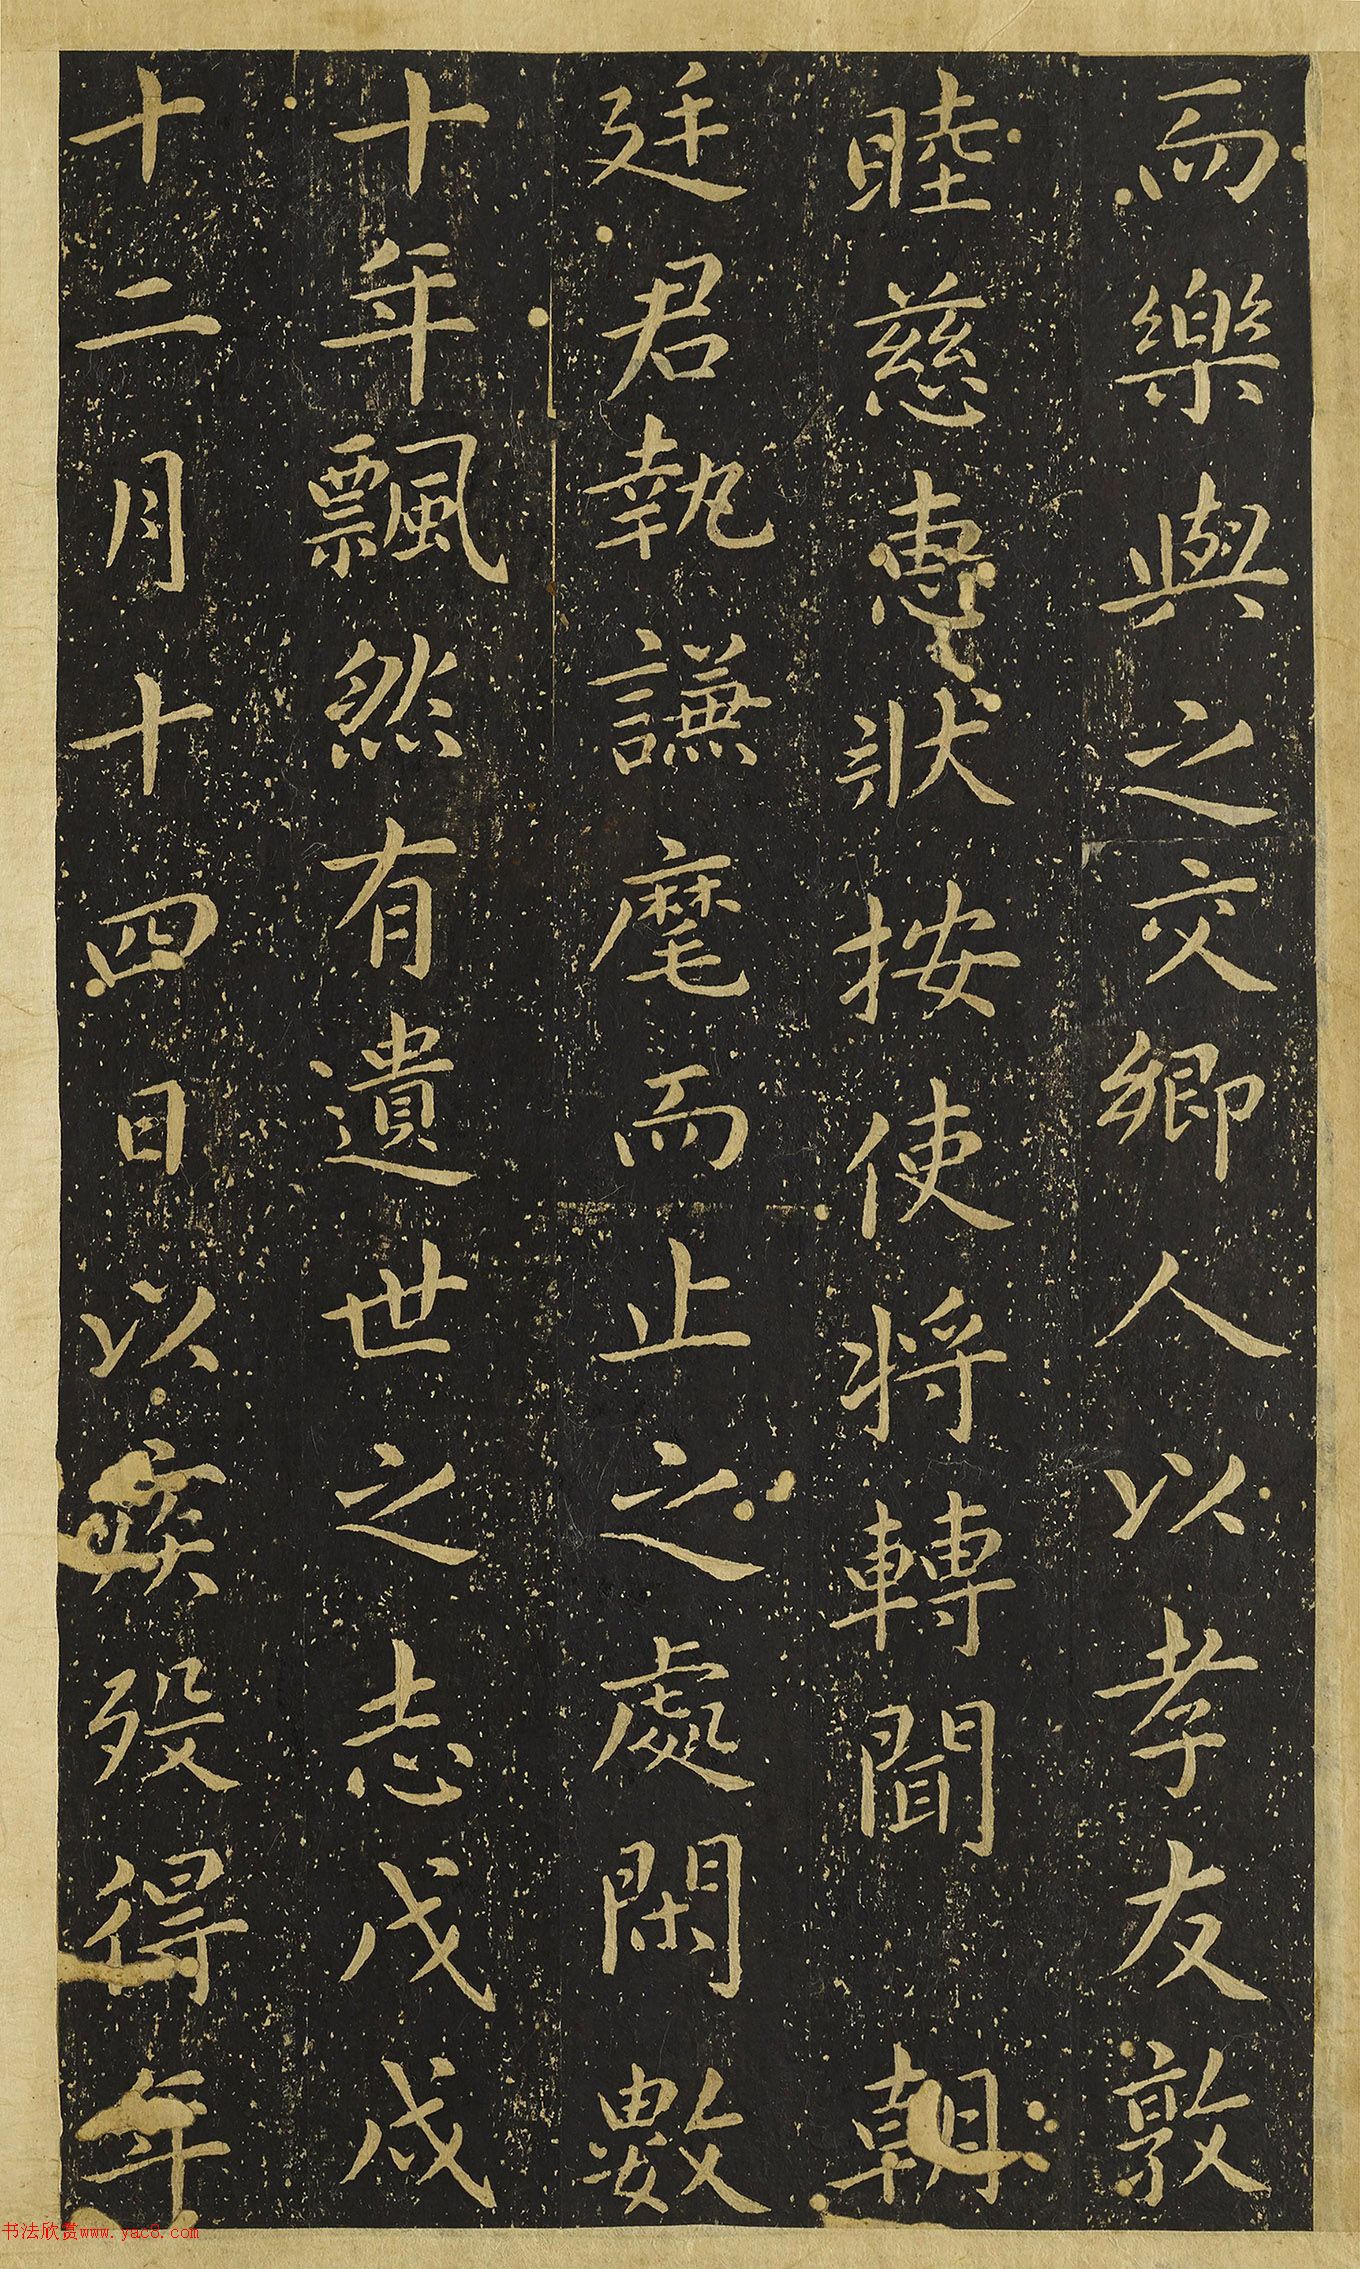 而樂與之交鄉人以孝友敦
睦慈惠狀按使將轉聞朝
廷君執謙麾而止之處閑數
十年飄然有遺世之志戊戌
十二月十四日以疾歿得年
书法欣赏www.yac8.com